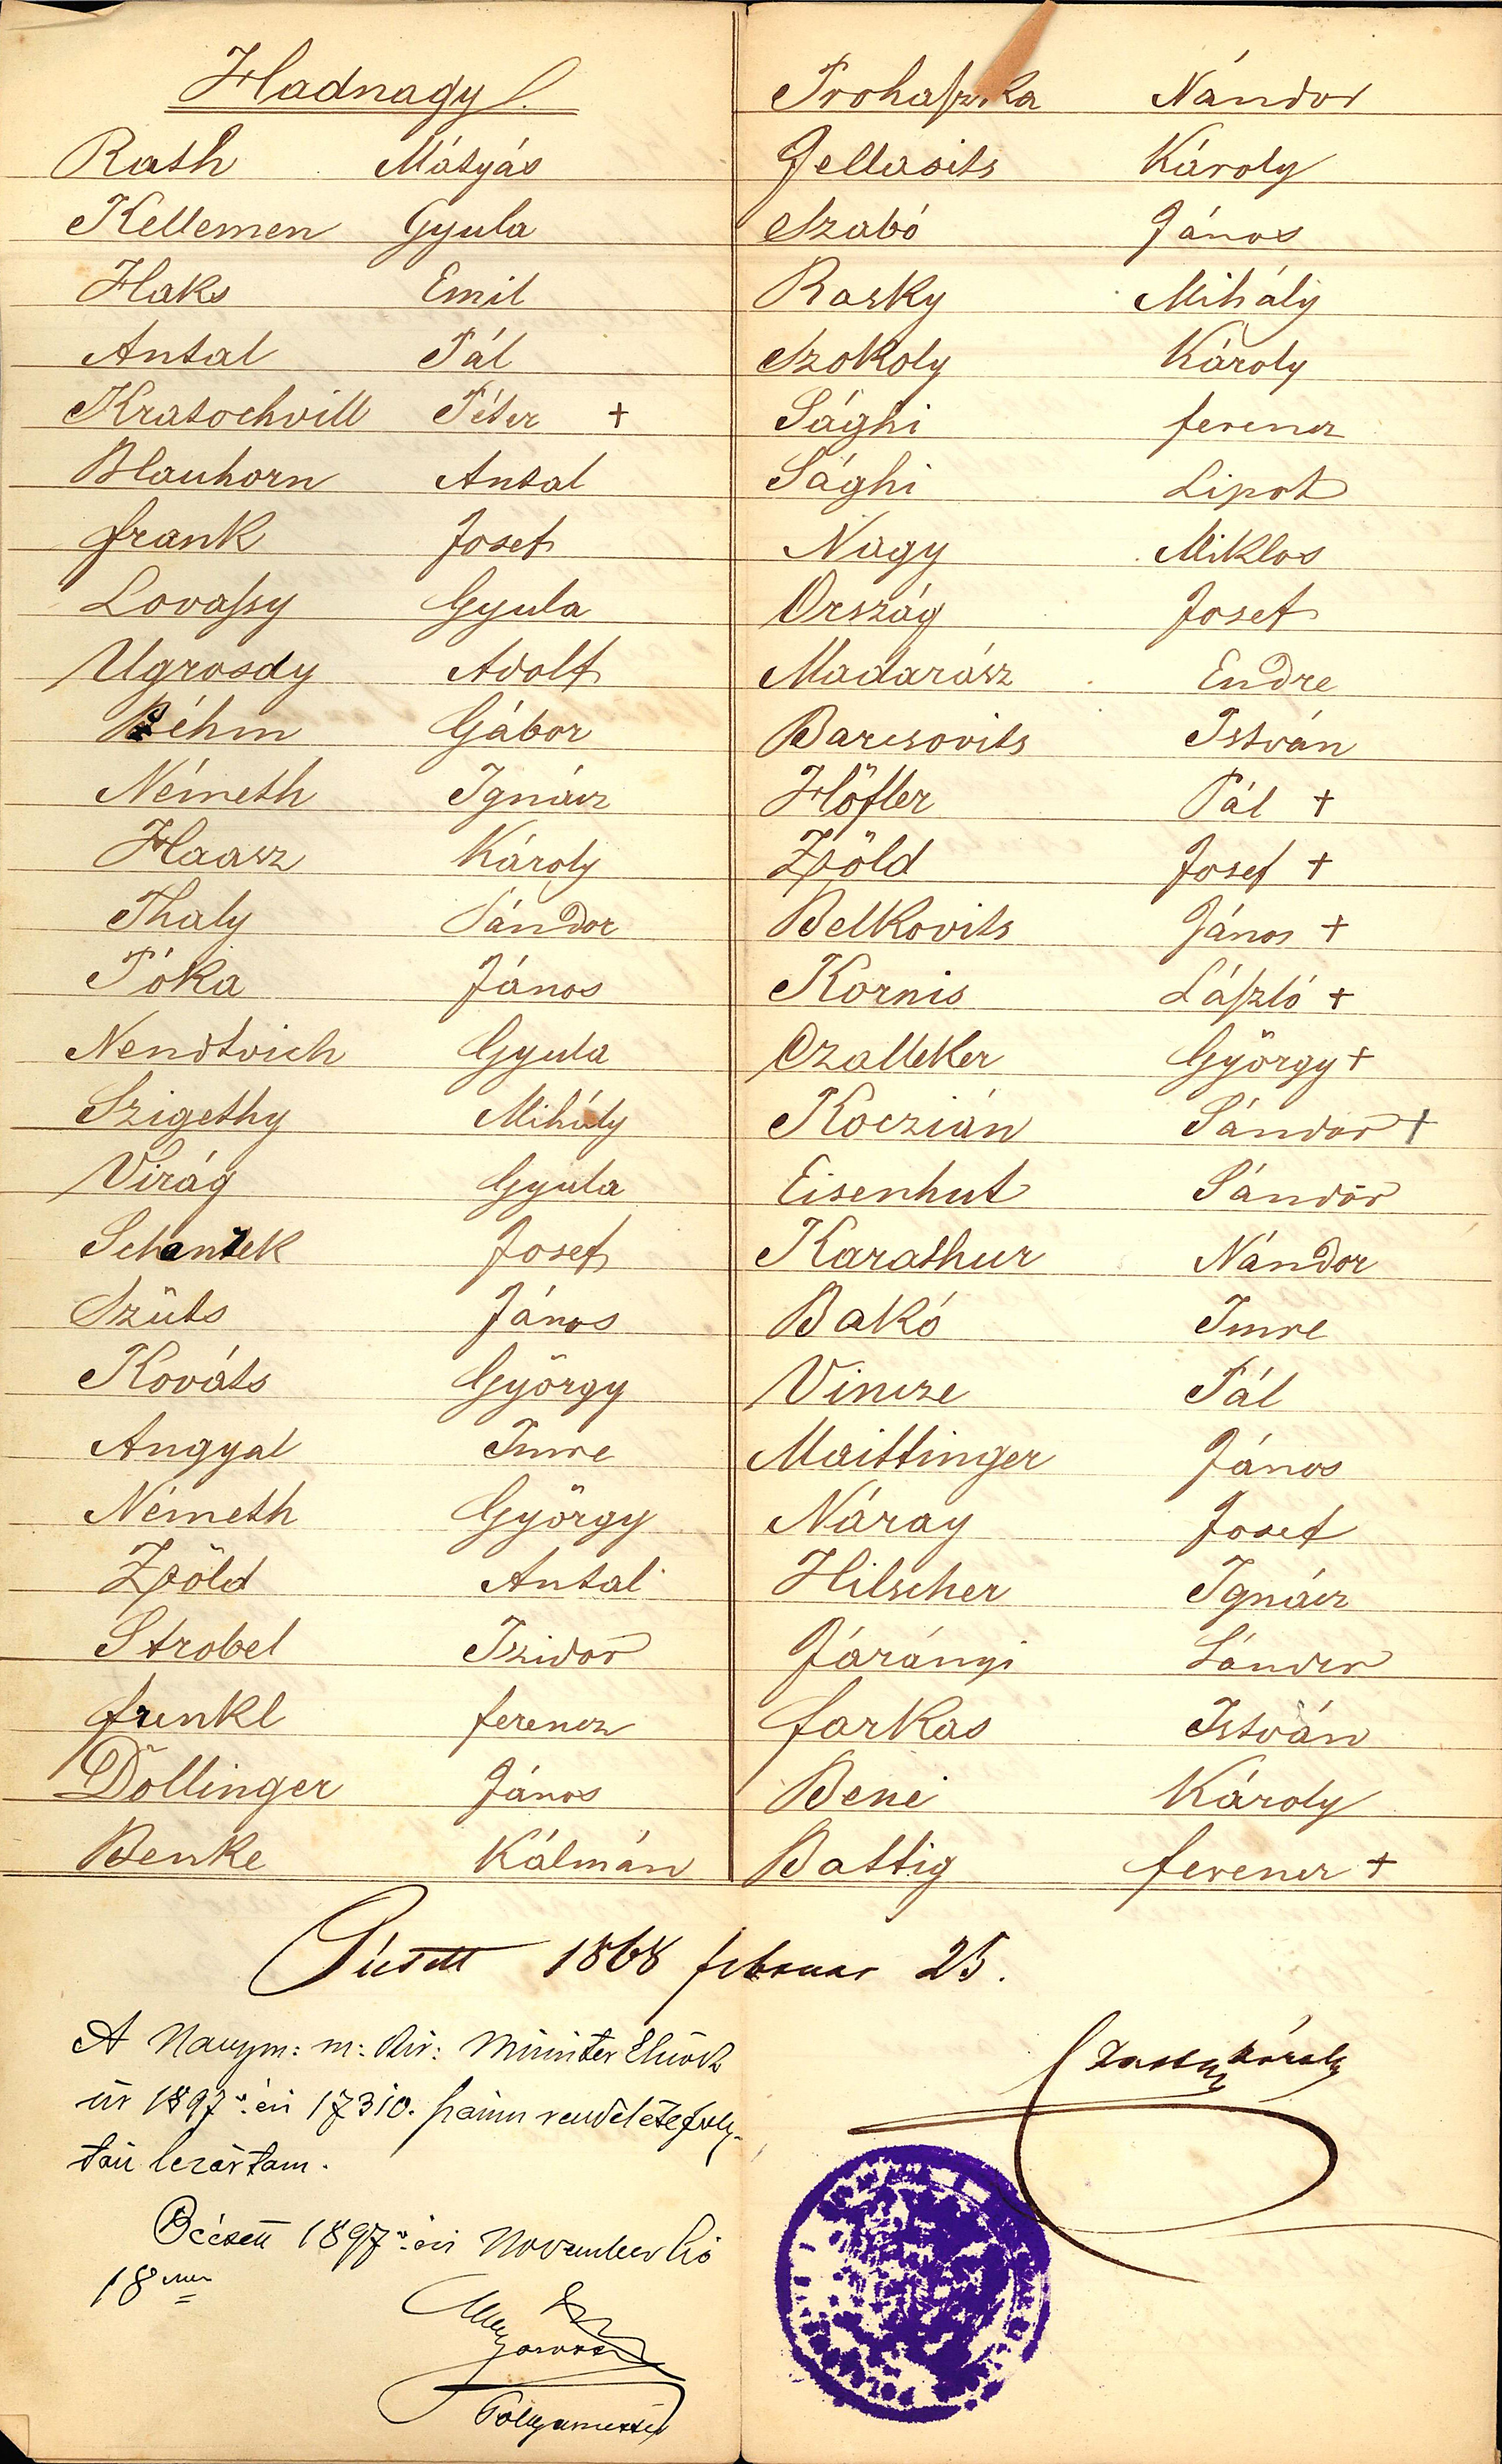 Hadnagy.
Rath Mátyás
Kellemen Gyula
Haks Emil
Antal Pál
Kratochvill Péter +
Blauhorn Antal
Frank Josef
Lovassy Gyula
Ugrosdy Adolf
Béhm Gábor
Németh Ignácz
Haasz Károly
Thaly Sándor
Póka János
Nendtvich Gyula
Szigethy Mihály
Virág Gyula
Schantek Josef
Szüts János
Kováts György
Angyal Imre
Németh György
Zsöld Antal
Strobel Iszidor
Frenkl Ferencz
Döllinger János
Benke Kálmán
Prohaszka Nándor
Jellasits Károly
Szabó János
Rasky Mihály
Szokoly Károly
Sághi Ferencz
Sághi Lipot
Nagy Miklos
Ország Josef
Madarász Endre
Barcsovits István
Höfler Pál +
Zsöld Josef +
Belkovits János +
Kornis László +
Czalleker György +
Koczián Sándor +
Eisenhut Sándor
Karathur Nándor
Bakó Imre
Vincze Pál
Maittinger János
Náray Josef
Hilscher Ignácz
Járányi Sándor
Farkas István
Bene Károly
Battig Ferencz +
1868 februar 25.
A Nagym: m: kir: Minister Elnök
úr 1897. évi 17310. számu rendelete foly-
tán lezártam.
Bécsett 1897. évi November hó
18
Károly